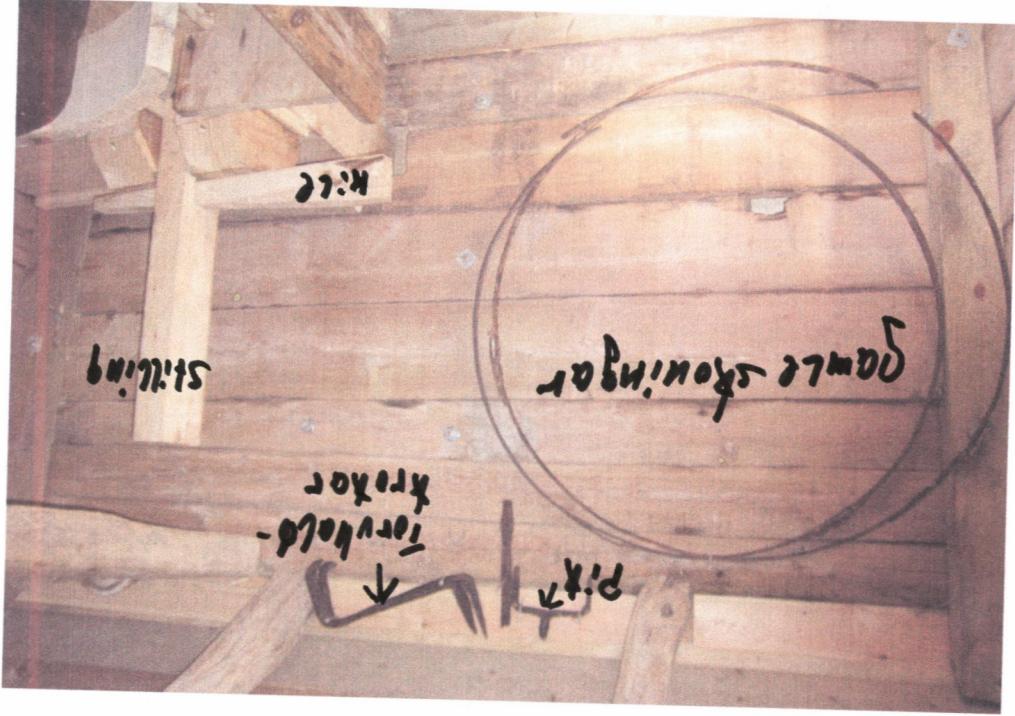 Pik
Torvhald-
krokar
Gamle skoningar
stilling
Kile